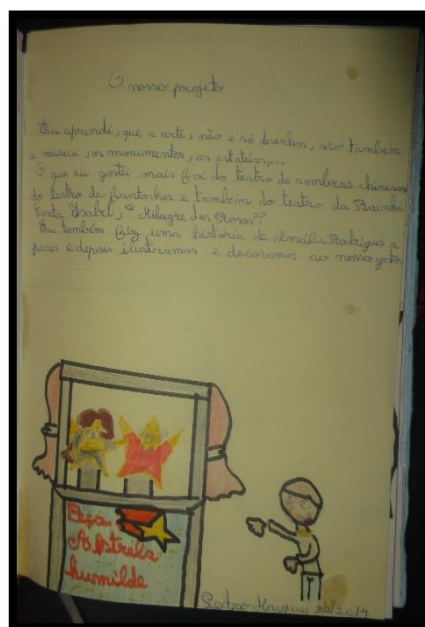 O nosso projeto
Eu aprendi, que a arte, não é só desenhos, são também
a música, os monumentos, as estátuas,...
O que eu gostei mais foi do teatro de sombras chinesas
do teatro de fantoches e também do teatro da Rainha
Santa Isabel, "Milagre das Rosas"
Eu também fiz uma história de Amália Rodrigues a
pares e depois ilustramos e decoramos ao nosso gosto.
Peça
A Estrela
humilde
Pedro Marques